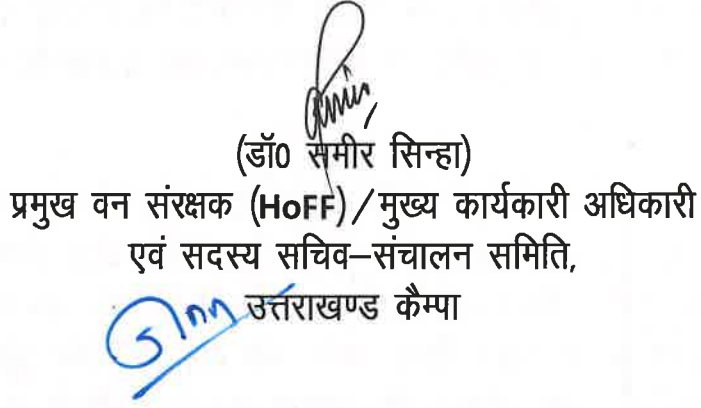 (डॉ0 समीर सिन्हा)
प्रमुख वन संरक्षक (HoFF)/मुख्य कार्यकारी अधिकारी
एवं सदस्य सचिव–संचालन समिति,
उत्तराखण्ड कैम्पा